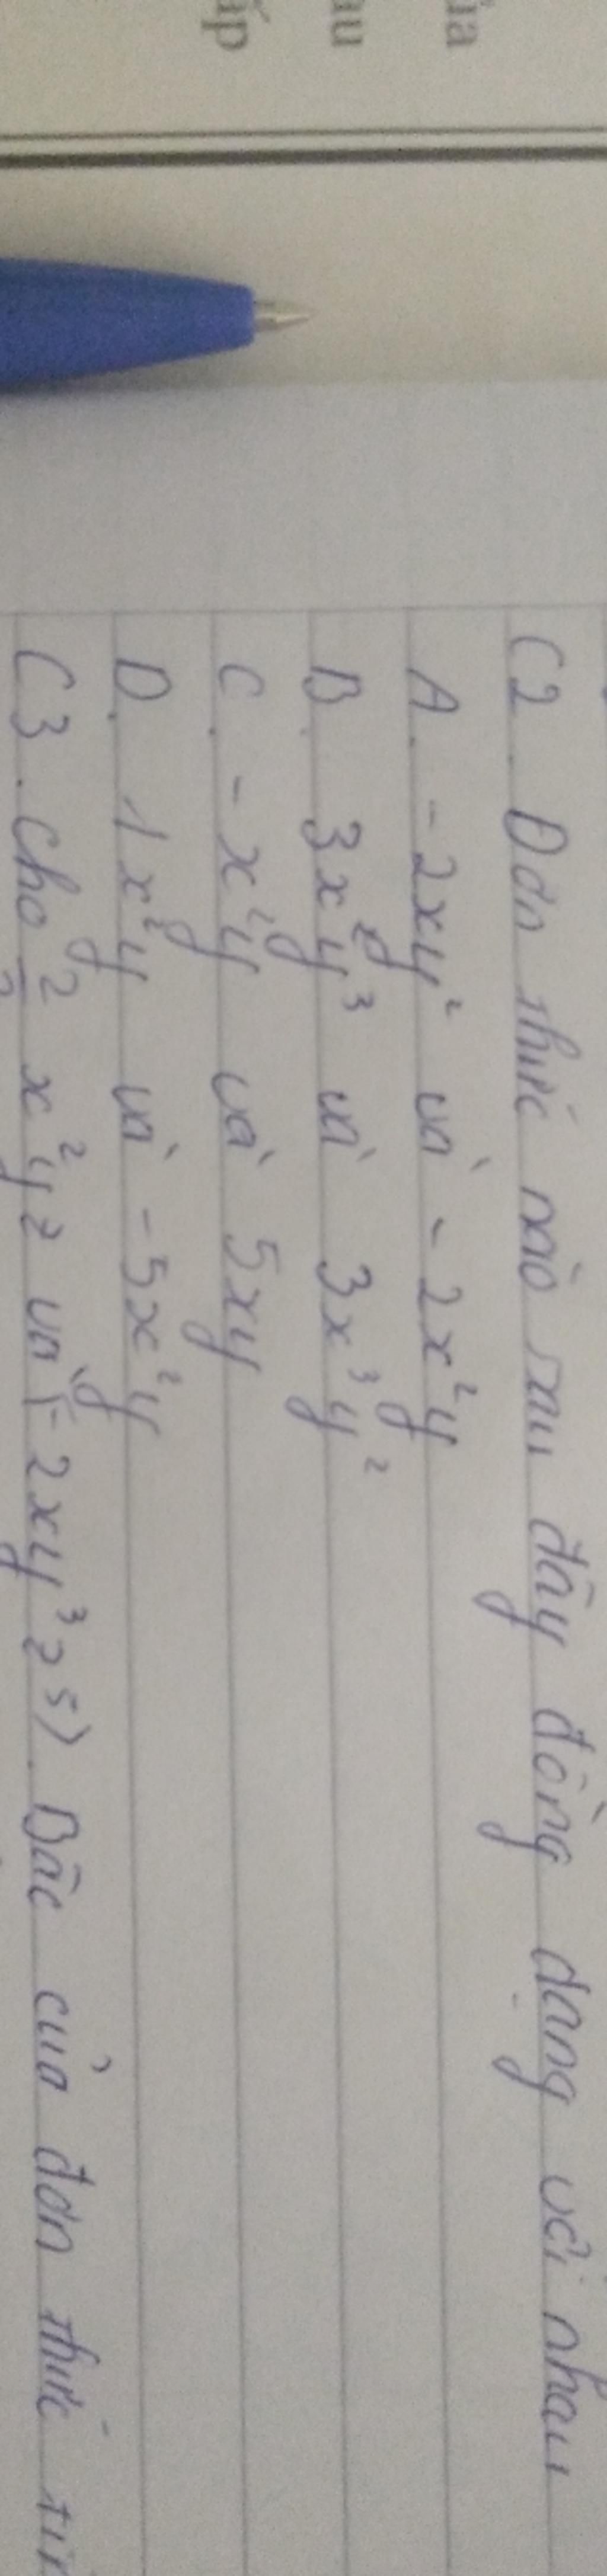 C2. Đơn thức nào sau đây đồng dạng với nhau
A. -2xy² và -2x²y
B. 3x²y³ và 3x³y²
C. -x²y và 5xy
D. 1x²y và -5x²y
C3. Cho 2 x²yz và (-2xy³z⁵). Bậc của đơn thức